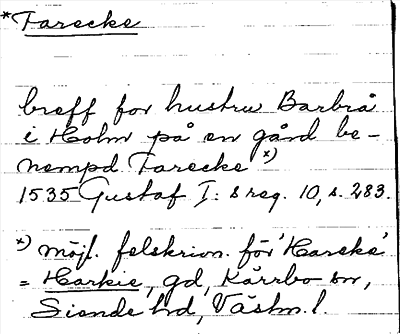 *Farecke
breff for hustru Barbrå
i Holm på en gård be-
nempd Farecke x)
1535 Gustaf I:s reg. 10, s. 283.
x) möjl. felskrivn. för 'Harcke'
= Harkie, gd, Kärrbo sn,
Siende hd, Västm. l.